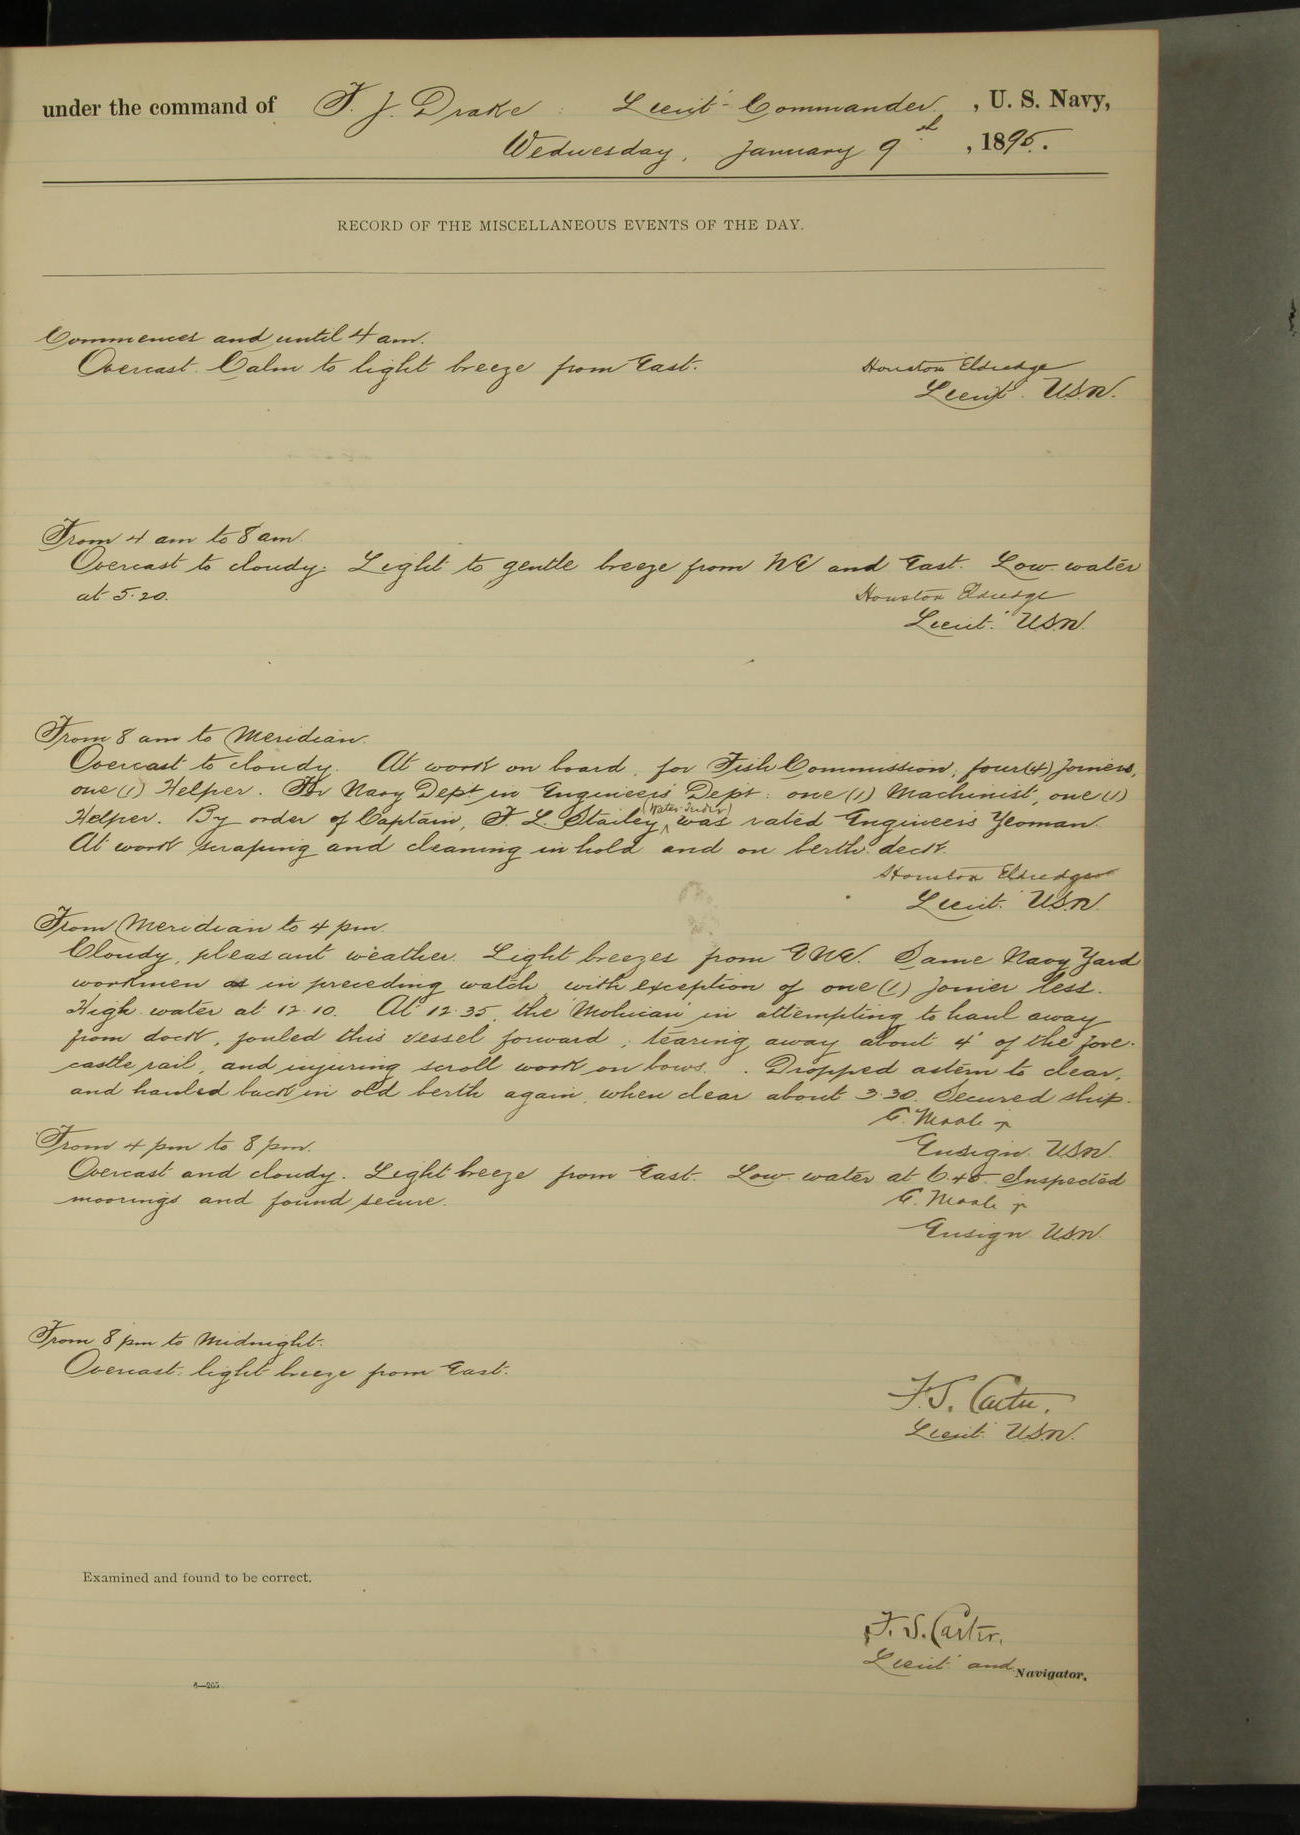 under the command of F. J. Drake. Lieut-Commander, U. S. Navy,
Wednesday, January 9th, 1895.
RECORD OF THE MISCELLANEOUS EVENTS OF THE DAY.
Commences and until 4 am.
Overcast. Calm to light breeze from East.
Houston Eldredge
Lieut. U.S.N.
From 4 am to 8 am.
Overcast to cloudy. Light to gentle breeze from NE and East. Low water
at 5.20.
Houston Eldredge
Lieut. U.S.N.
From 8 am to Meridian.
Overcast to cloudy. At work on board, for Fish Commission, four (4) Joiners,
one (1) Helper. For Navy Dept in Engineers Dept: one (1) Machinist, one (1)
Helper. By order of Captain, F. L. Stailey (Water Tender) was rated Engineers Yeoman.
At work scraping and cleaning in hold and on berth deck.
Houston Eldredge
Lieut. U.S.N.
From Meridian to 4 pm.
Cloudy, pleasant weather. Light breezes from ENE. Same Navy Yard
workmen as in preceding watch, with exception of one (1) Joiner less.
High water at 12.10. At 12.35, the "Mohican" in attempting to haul away
from dock, fouled this vessel forward; tearing away about 4' of the fore-
castle rail, and injuring scroll work on bows. Dropped astern to clear,
and hauled back in old berth again, when clear about 3.30. Secured ship.
C. M. jr
Ensign U.S.N.
From 4 pm to 8 pm.
Overcast and cloudy. Light breeze from East. Low water at 6.45. Inspected
moorings and found secure.
jr
Ensign U.S.N.
From 8 pm to Midnight.
Overcast: light breeze from East.
F. S. Carter.
Lieut. U.S.N.
Examined and found to be correct.
F. S. Carter.
Lieut. and Navigator.
6—205